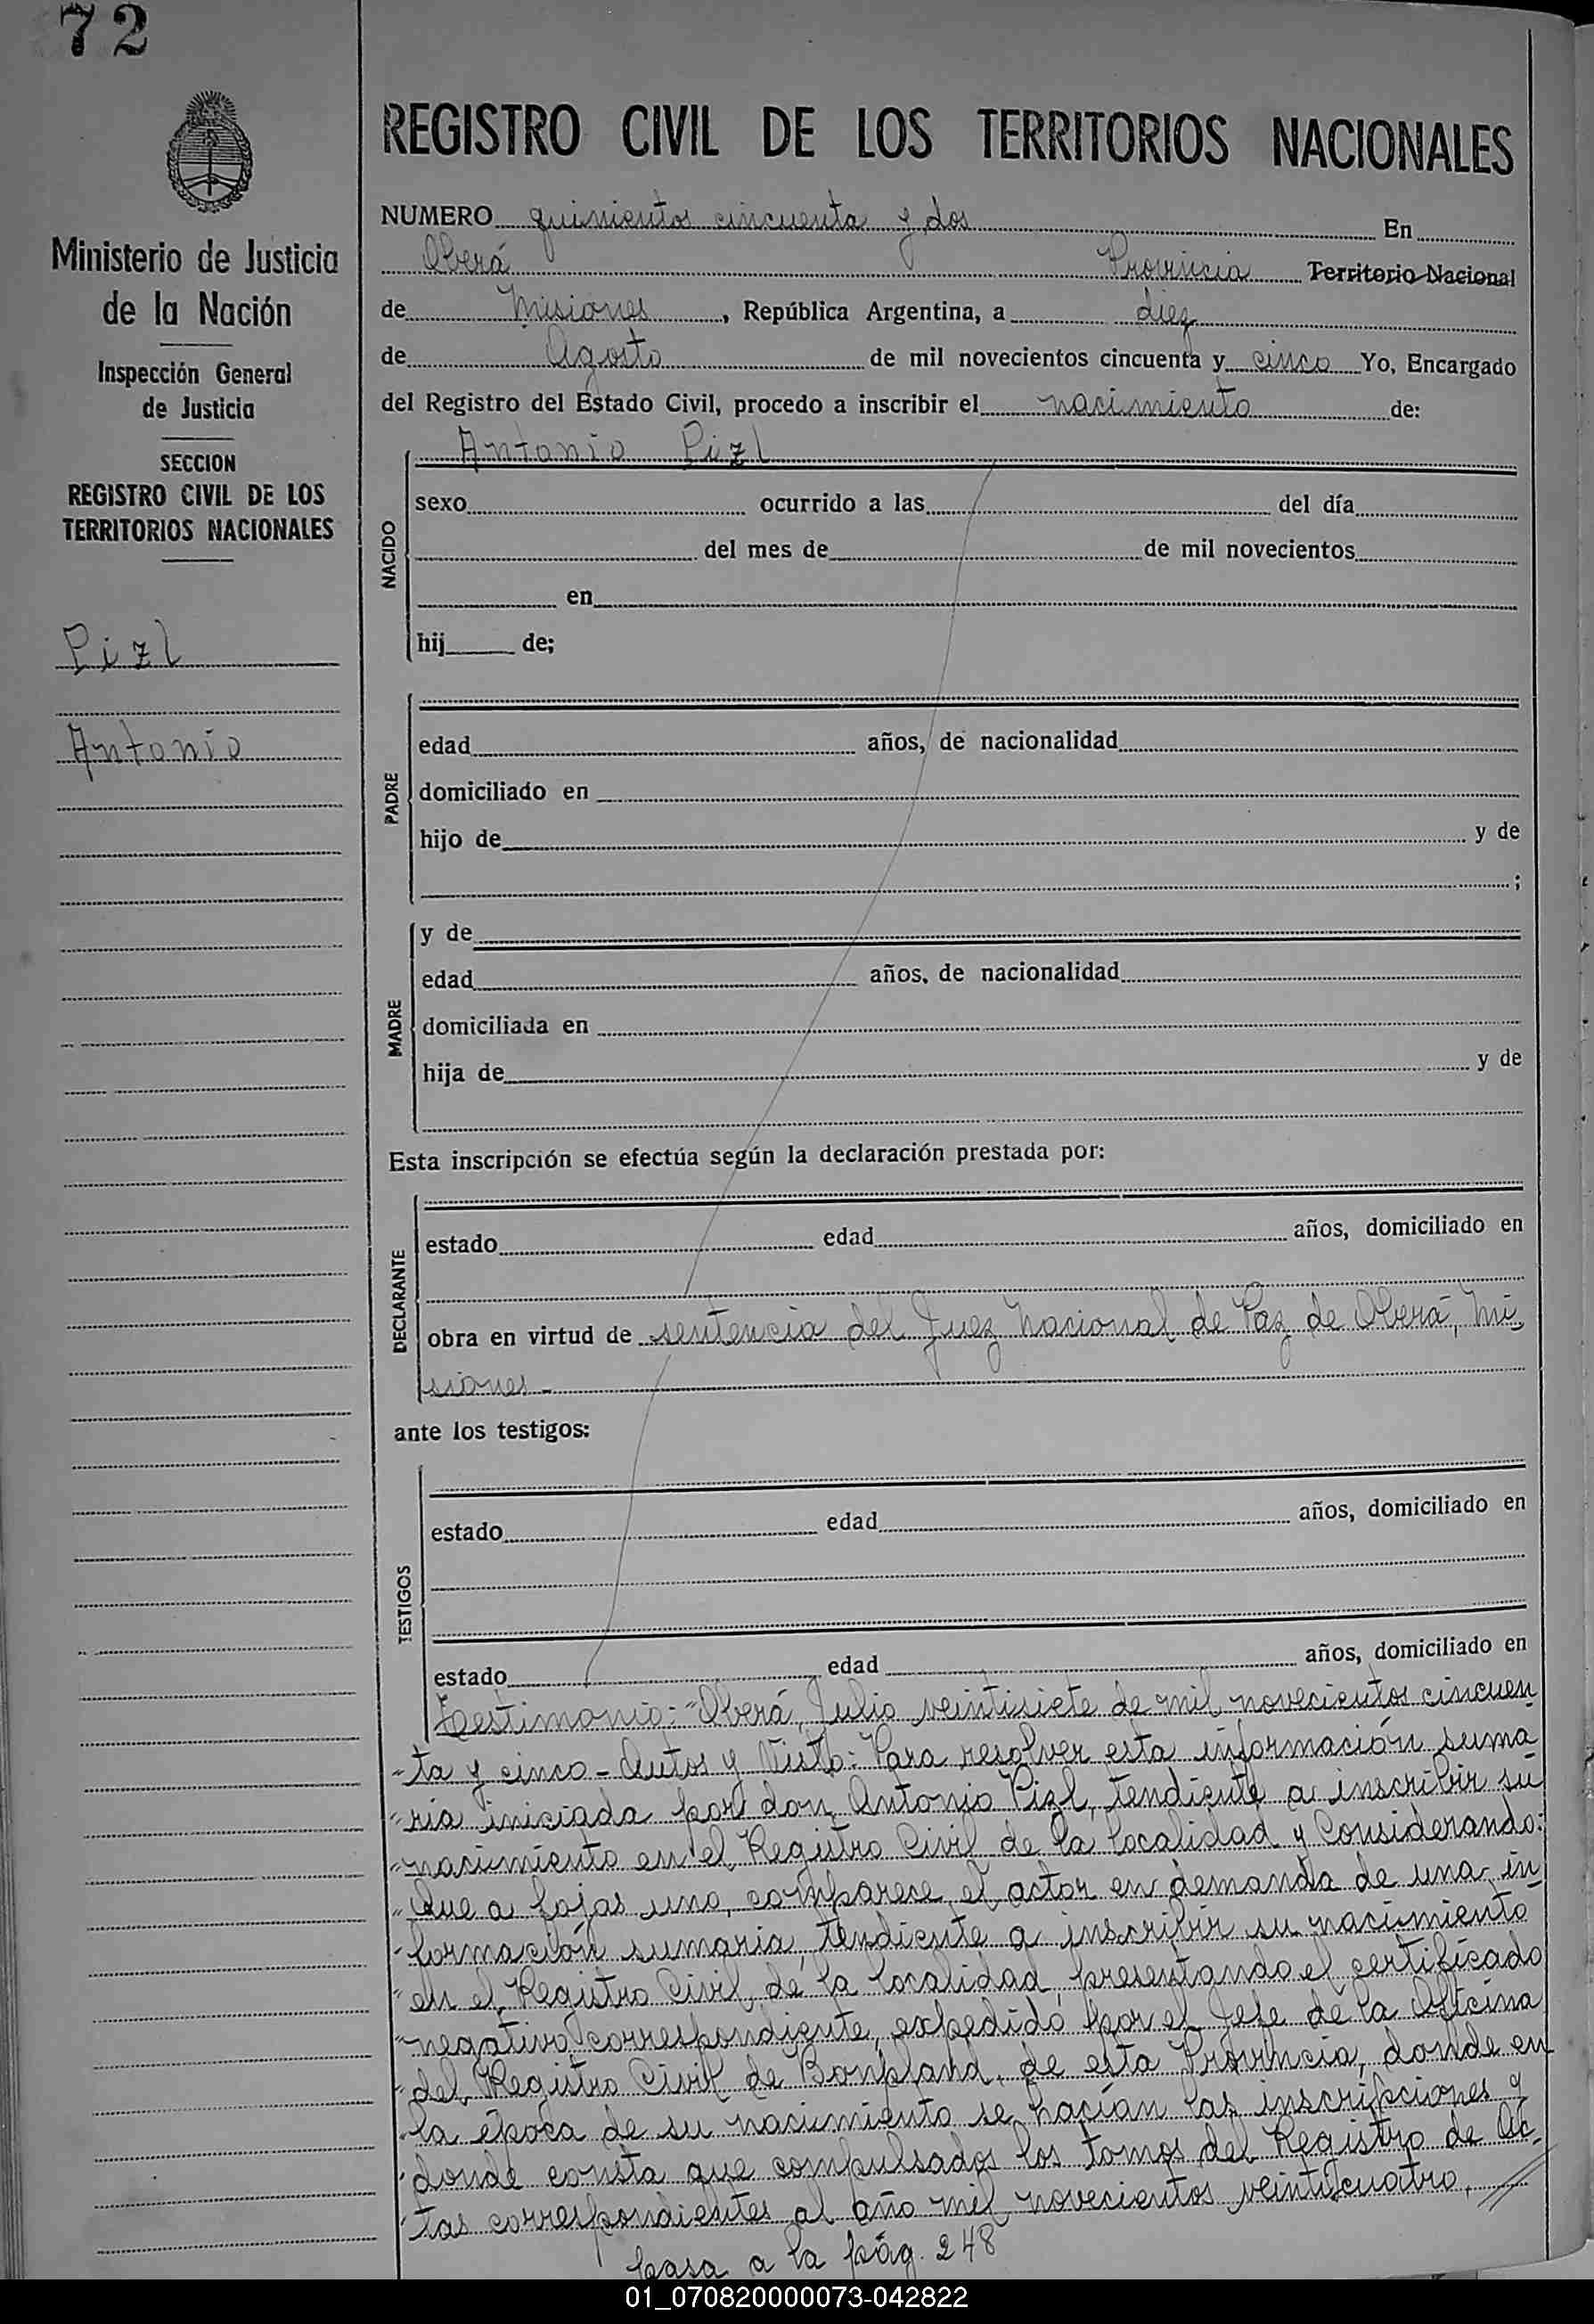 72
Ministerio de Justicia
de la Nación
Inspección General
de Justicia
SECCION
REGISTRO CIVIL DE LOS
TERRITORIOS NACIONALES
Pizl
Antonio
REGISTRO CIVIL DE LOS TERRITORIOS NACIONALES
NUMERO quinientos cincuenta y dos En
Oberá Provincia Territorio Nacional
de Misiones, República Argentina, a diez
de Agosto de mil novecientos cincuenta y cinco Yo, Encargado
del Registro del Estado Civil, procedo a inscribir el nacimiento de:
Antonio Pizl
NACIDO
sexo ocurrido a las del día
del mes de de mil novecientos
en
hij de;
PADRE
edad años, de nacionalidad
domiciliado en
hijo de y de
;
MADRE
y de
edad años, de nacionalidad
domiciliada en
hija de y de
Esta inscripción se efectúa según la declaración prestada por:
DECLARANTE
estado edad años, domiciliado en
obra en virtud de sentencia del Juez Nacional de Paz de Oberá, Mi-
siones -
ante los testigos:
TESTIGOS
estado edad años, domiciliado en
estado edad años, domiciliado en
Testimonio: "Oberá, Julio veintisiete de mil novecientos cincuen
"ta y cinco - Autos y Visto: Para resolver esta información suma
"ria iniciada por don Antonio Pizl, tendiente a inscribir su
"nacimiento en el Registro Civil de la localidad y Considerando:
"Que a fojas uno, comparece el actor en demanda de una in
"formación sumaria, tendiente a inscribir su nacimiento
"en el Registro Civil de la localidad, presentando el certificado
"negativo correspondiente, expedido por el Jefe de la Oficina
"del Registro Civil de Bonpland, de esta Provincia, donde en
"la época de su nacimiento se hacían las inscripciones y
"donde consta que compulsados los tomos del Registro de Ac-
"tas correspondientes al año mil novecientos veinticuatro, //
pasa a la pág. 248
01_070820000073-042822